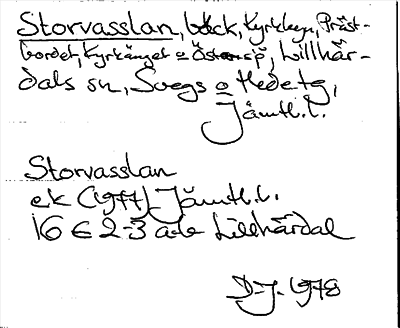 Storvasslan, bäck, Kyrkbyn, Präst-
bordet, Kyrkänget o Östansjö, Lillhär-
dals sn, Svegs o Hede tg,
Jämtl.l.
Storvasslan
ek (1977) Jämtl.l.
16 E 2-3 a-b Lillhärdal
D-J. 1978